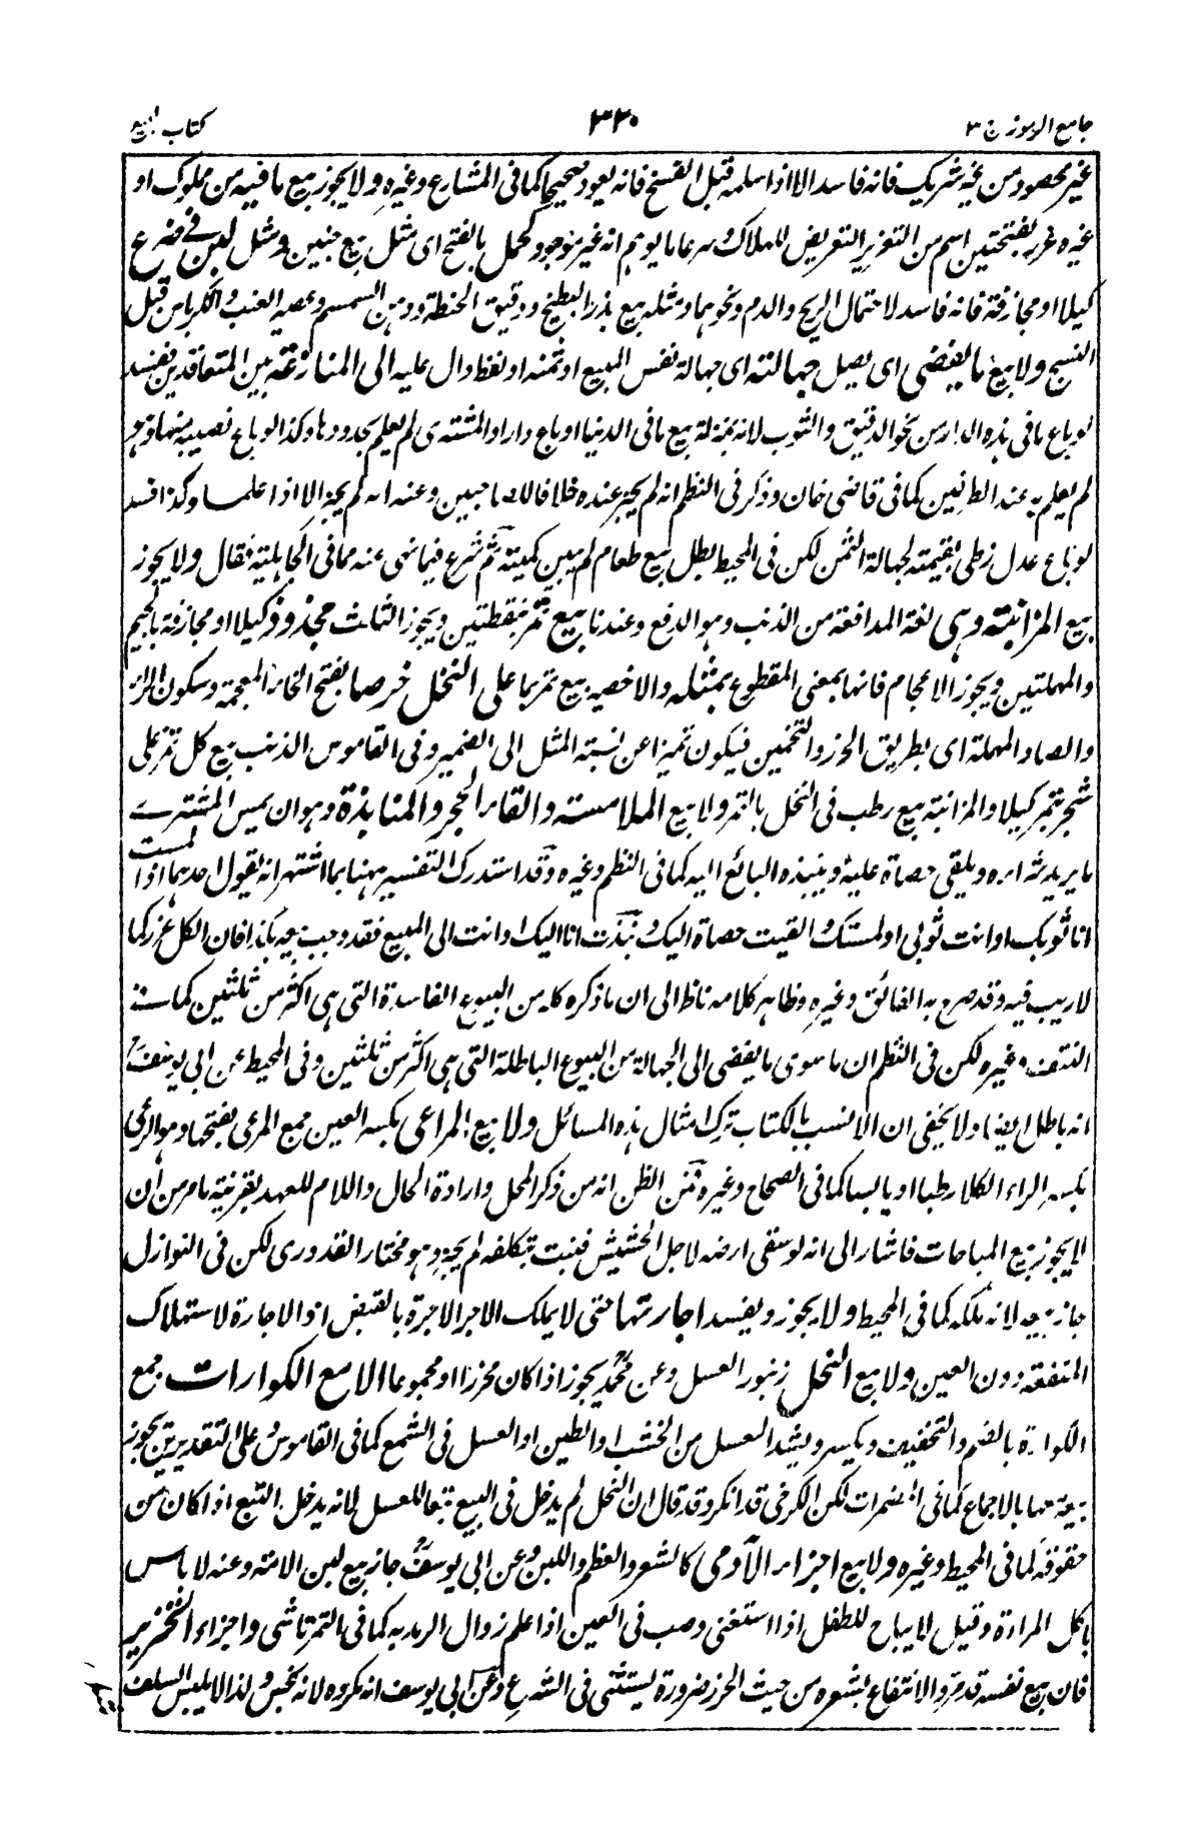 جامع الرموز ج ٣ ٣٣٠ كتاب البيع
غير محصود من غير شريك فانه فاسد الا اذا سلمه قبل الفسخ فانه يعود صحيحا كما فى المشارع وغيره ولا يجوز بيع ما فيه من مملوك او
غيره غرر بفتحتين اسم من التغرير التعريض للهلاك وشرعا ما يوهم انه غير موجود كحمل بالفتح اى مثل بيع جنين ومثل لبن فى ضرع
كيلا او مجازفة فانه فاسد لاحتمال الريح والدم ونحوهما ومثله بيع بذر البطيخ ودقيق الحنطة ودهن السمسم وعصير العنب والكرباس قبل
النسج ولا بيع ما يفضى اى يصل جهالته اى جهالة نفس المبيع او ثمنه او لفظ دال عليه الى المنازعة بين المتعاقدين فيفسد
لو باع ما فى هذه الدار من نحو الدقيق والثوب لانه بمنزلة بيع ما فى الدنيا او باع دارا والمشترى لم يعلم بحدودها وكذا لو باع نصيبه منها
لم يعلم به عند الطرفين كما فى قاضى خان وذكر فى النظم انه لم يجز عنده خلافا للصاحبين وعنه انه لم يجز الا اذا علما وكذا فسد
لو باع عدل زطى بقيمته لجهالة الثمن لكن فى المحيط بطل بيع طعام لم يبين كميته ثم شرع فيما نهى عنه مما فى الجاهلية فقال ولا يجوز
بيع المزابنة وهى لغة المدافعة من الزبن وهو الدفع وعندنا بيع تمر بنقطتين ويجوز الثلث مجذوذ كيلا او مجازفة بالجيم
والمهملتين ويجوز الاعجام فانها بمعنى المقطوع بمثله والاخصر بيع تمر بما على النخل خرصا بفتح الخاء المعجمة وسكون الراء
والصاد المهملة اى بطريق الحزر والتخمين فيكون تميزا عن نسبة المثل الى الضمير وفى القاموس الزبن بيع كل تمر على
شجر بتمر كيلا والمزابنة بيع رطب فى النخل بالتمر ولا بيع الملامسة والقاء الحجر والمنابذة وهو ان يمس المشترى
ما يريد شراءه ويلقى حصاة عليه وينبذه البائع اليه كما فى النظم وغيره وقد استدرك التفسير ههنا بما اشتهر انه يقول احدهما اذا لمست
انا ثوبك او انت ثوبى او لمستك والقيت حصاة اليك ونبذت انا اليك او انت الى المبيع فقد وجب بيعه بكذا فان الكل غرر كما
لا ريب فيه وقد صرح به الفائق وغيره وظاهر كلامه ناظر الى ان ما ذكره كله من البيوع الفاسدة التى هى اكثر من ثلثين كما فى
النتف وغيره لكن فى النظم ان ما سوى ما يفضى الى الجهالة من البيوع الباطلة التى هى اكثر من ثلثين وفى المحيط عن ابى يوسف
انه باطل ايضا ولا يخفى ان الانسب بالكتاب ترك امثال هذه المسائل ولا بيع المراعى بكسر العين جمع المرعى بفتحها وهو الرعى
بكسر الراء الكلا رطبا او يابسا كما فى الصحاح وغيره فمن الظن انه من ذكر المحل وارادة الحال واللام للعهد بقرينة ما مر من ان
لا يجوز بيع المباحات فاشار الى انه لو سقى ارضه لاجل الحشيش فنبت بتكلفه لم يجز وهو مختار القدورى لكن فى النوازل
جاز بيعه لانه ملكه كما فى المحيط ولا يجوز ويفسد اجارتها حتى لا يملك الاجر الاجرة بالقبض اذ الاجارة لاستهلاك
المنفعة دون العين ولا بيع النحل زنبور العسل وعن محمد يجوز اذا كان محرزا او مجموعا الا مع الكوارات جمع
الكوارة بالضم والتخفيف ويكسر ويشد العسل من الخشب او الطين او العسل فى الشمع كما فى القاموس وعلى التقديرين يجوز
بيعه معها بالاجماع كما فى المضمرات لكن الكرخى قد انكر وقد قال ان النحل لم يدخل فى البيع تبعا للعسل لانه يدخل التبع اذا كان من
حقوقه كما فى المحيط وغيره ولا بيع اجزاء الآدمى كالشعر والعظم واللبن وعن ابى يوسف جاز بيع لبن الامة وعنه لا باس
بكل المرادة وقيل لا يباح للطفل اذا استغنى وصب فى العين اذا علم زوال الرمد به كما فى التمرتاشى واجزاء الخنزير
فان بيع نفسه قد مر والانتفاع بشعره من حيث الخرز ضرورة يستثنى فى الشرع وعن ابى يوسف انه مكروه لانه نجس ولذا لا يلبس السلف